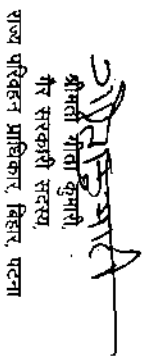 श्रीमती गीता कुमारी,
गैर सरकारी सदस्य,
राज्य परिवहन प्राधिकार, बिहार, पटना